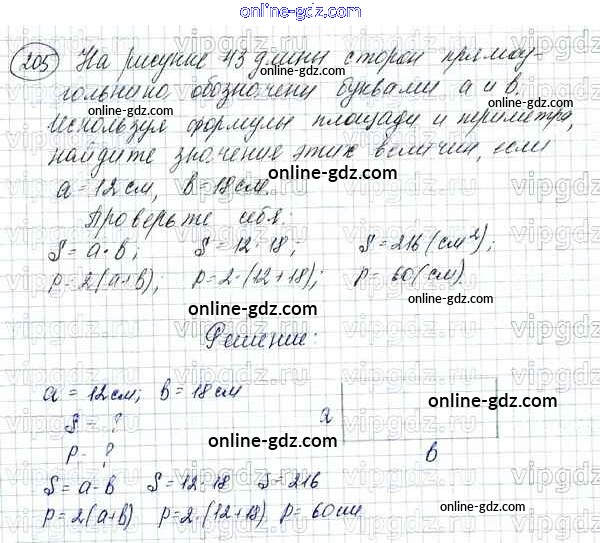 online-gdz.com
205 На рисунке 43 длины сторон прямоу-
гольника обозначены буквами a и b.
Используя формулы площади и периметра,
найдите значение этих величин, если
a = 12 см, b = 18 см.
Проверьте себя:
S = a · b; S = 12 · 18; S = 216 (см²);
P = 2(a+b); P = 2 · (12+18); P = 60 (см).
Решение:
a = 12 см; b = 18 см
S = ?
a
P - ?
b
S = a · b S = 12 · 18 S = 216
P = 2(a+b) P = 2 · (12+18) P = 60 см
online-gdz.com
online-gdz.com
online-gdz.com
online-gdz.com
online-gdz.com
online-gdz.com
online-gdz.com
online-gdz.com
online-gdz.com
online-gdz.com
online-gdz.com
online-gdz.com
online-gdz.com